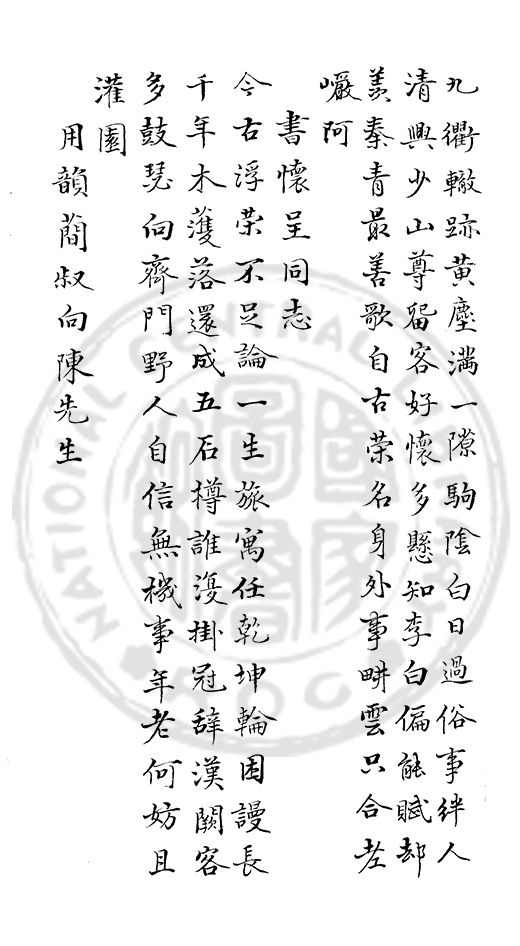 九衢轍跡黃塵滿一隙駒陰白日過俗事絆人
清興少山尊畱客好懷多懸知李白偏能賦却
羨秦青最善歌自古荣名身外事畊雲只合老
巖阿
書懷呈同志
今古浮荣不足論一生旅寓任乾坤輪囷謾長
千年木濩落還成五石樽誰漫掛冠辞漢闕容
多鼓瑟向齊門野人自信無機事年老何妨且
灌園
用韻蕳叔向陳先生
NATIONAL CENTRAL LIBRARY